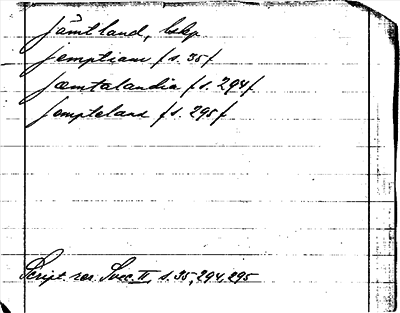 Jämtland, lskp
Jemptiam /s. 35/
Jæmtalandia /s. 294/
Jempteland /s. 295/
Script. rer. Svec. II, s. 35, 294, 295